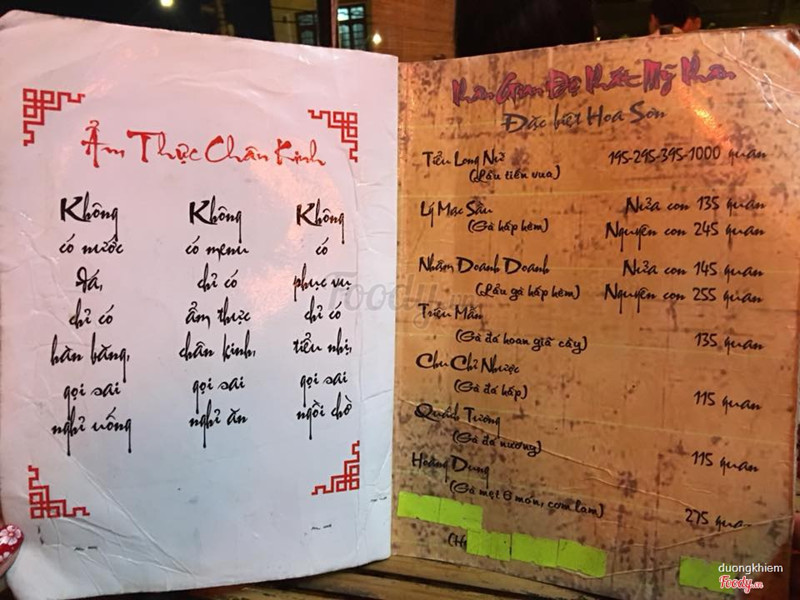 Ẩm Thực Chân Kinh
Không
có nước
đá,
chỉ có
hàn băng,
gọi sai
nghỉ uống
Không
có menu
chỉ có
ẩm thực
chân kinh,
gọi sai
nghỉ ăn
Không
có
phục vụ
chỉ có
tiểu nhị,
gọi sai
ngồi chờ
Nhân Gian Đệ Nhất Mỹ Nhân
Đặc biệt Hoa Sơn
Tiểu Long Nữ 195-295-395-1000 quan
(Lẩu tiến vua)
Lý Mạc Sầu Nửa con 135 quan
(Gà hấp hèm) Nguyên con 245 quan
Nhậm Doanh Doanh Nửa con 145 quan
(Lẩu gà hấp hèm) Nguyên con 255 quan
Triệu Mẫn
(Gà đá hoan giả cầy) 135 quan
Chu Chỉ Nhược
(Gà đá hấp) 115 quan
Quách Tương
(Gà đá nướng) 115 quan
Hoàng Dung
(Gà mẹt 6 món, cơm lam) 275 quan
Foody
duongkhiem
Foody.vn